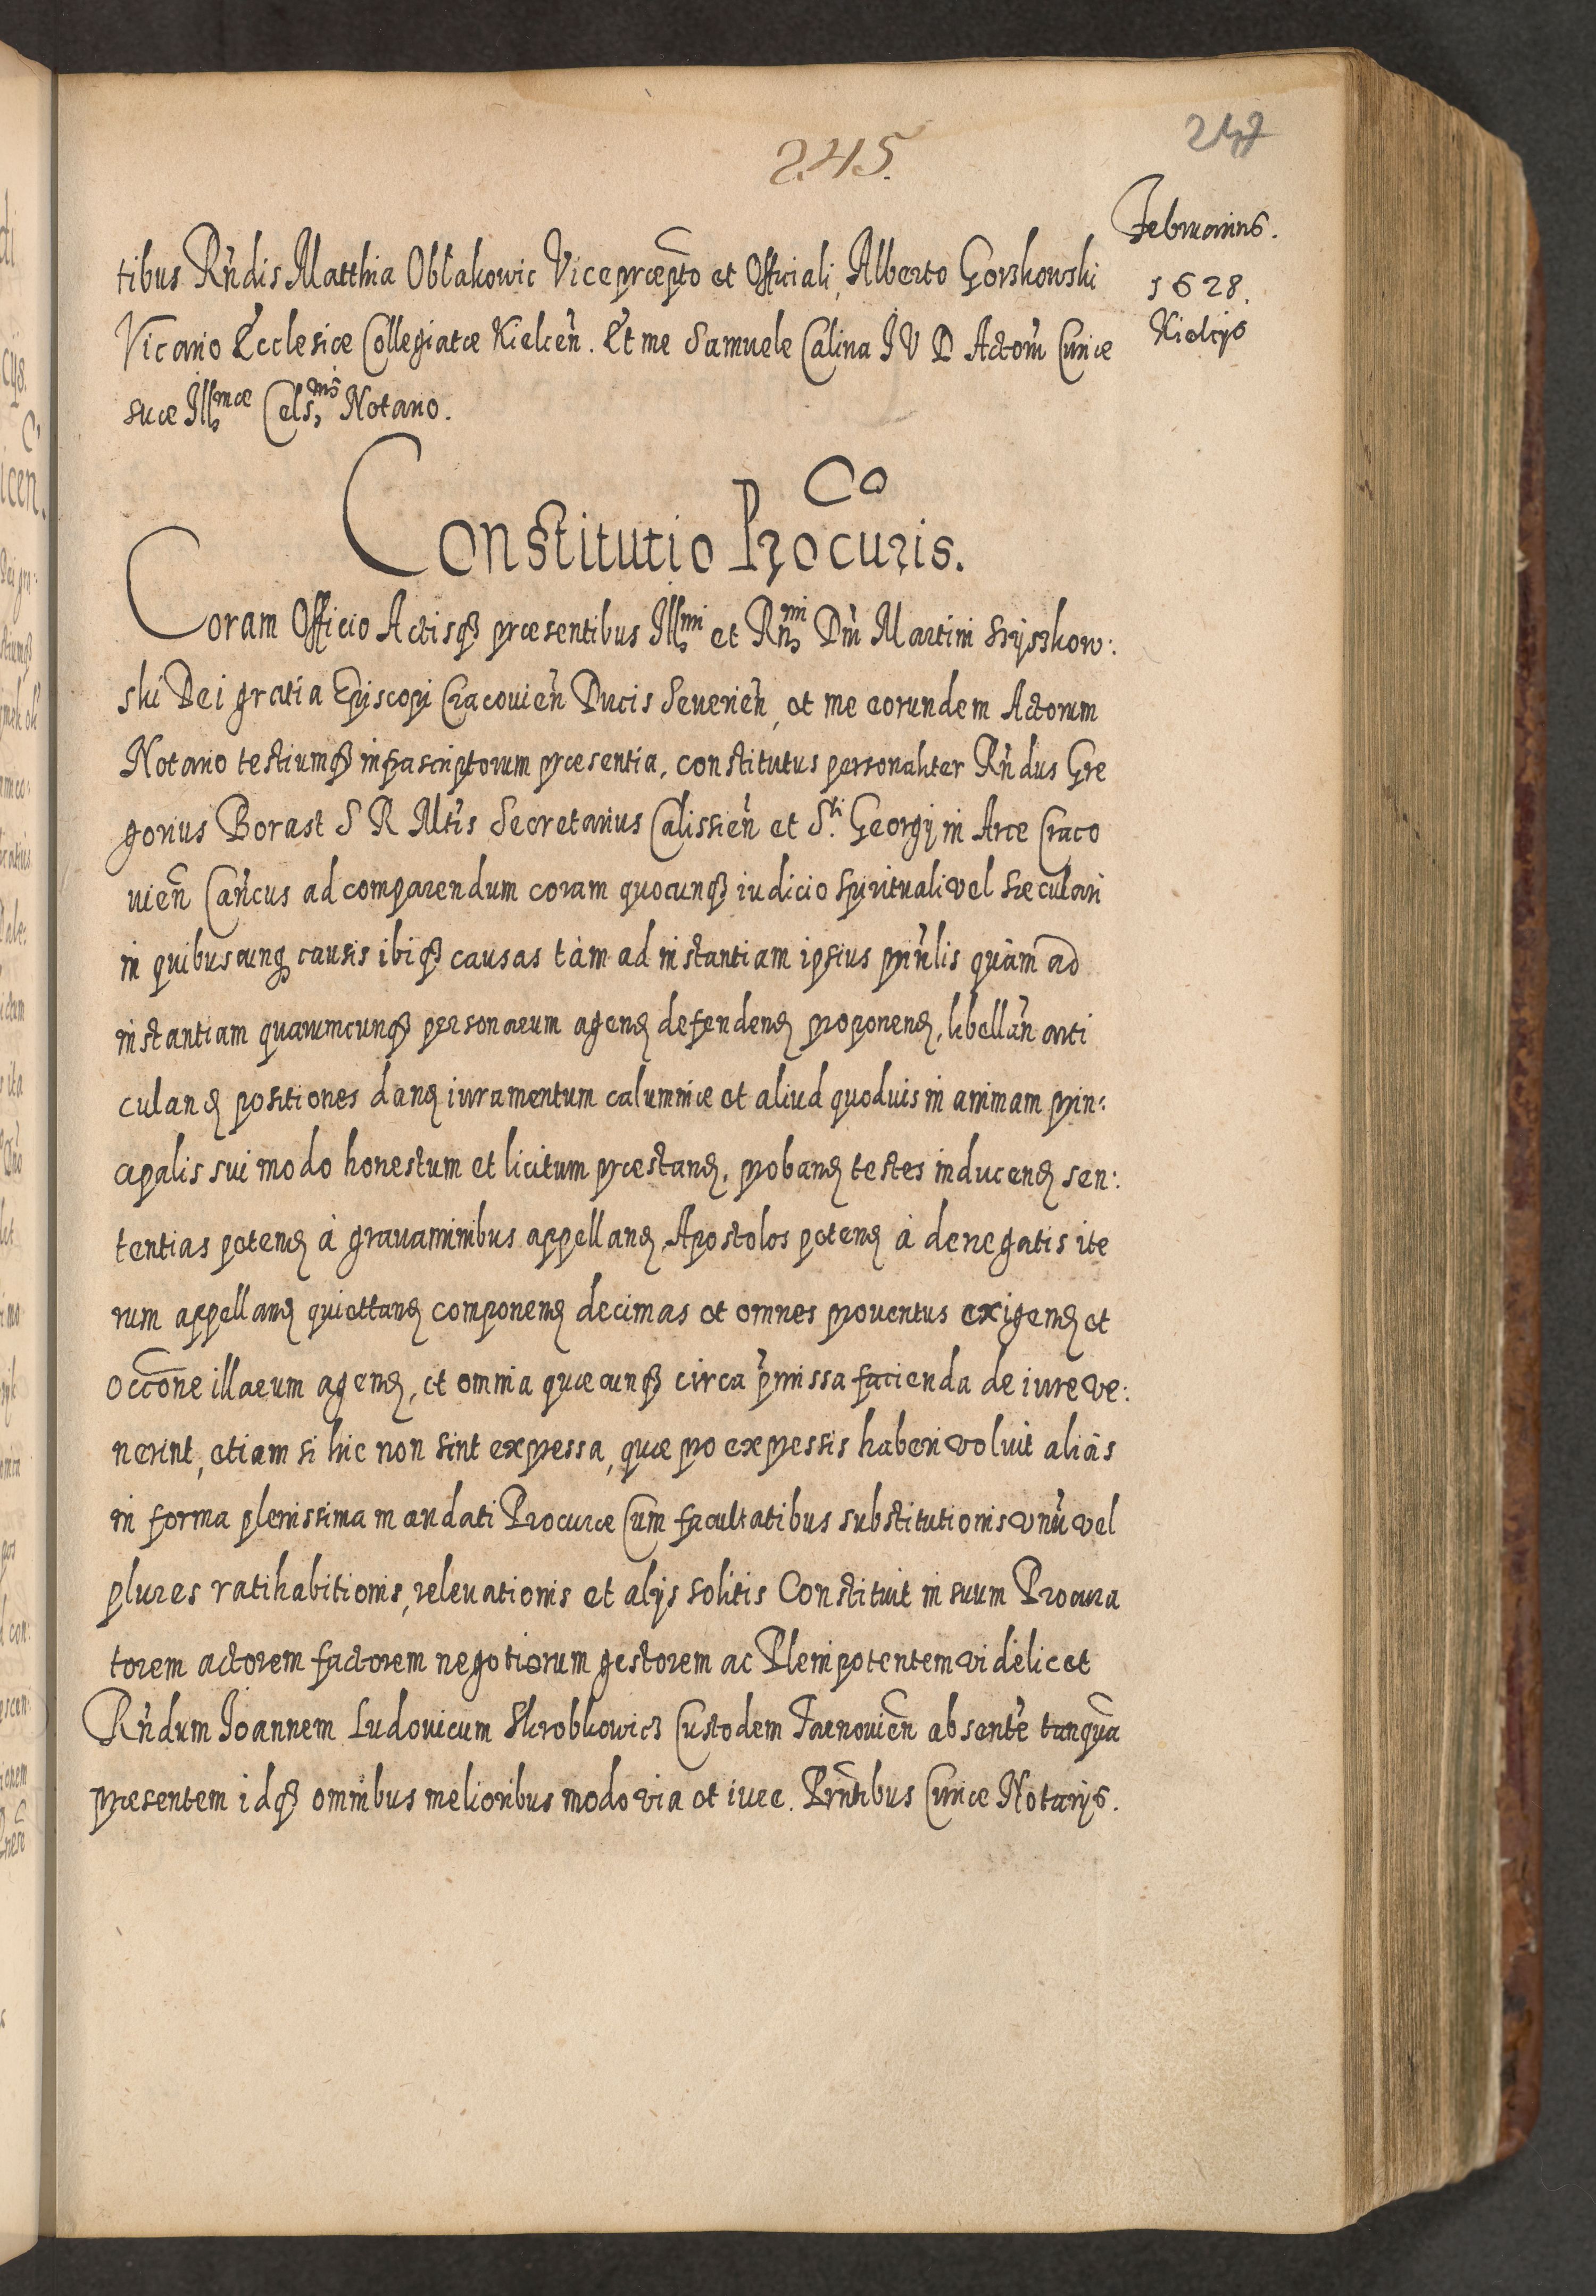 245.
247
Februarius.
1628.
Kielcijs
tibus Rñdis Matthia Obłakowic Vicepræpto et Officiali, Alberto Gorzkowski
Vicario Ecclesiæ Collegiatæ Kielceñ. Et me Samuele Calina I V D Actorũ Curiæ
suæ Illmæ Celsnis Notario.
Constitutio Procuris.
Coram Officio Actisq3 præsentibus Illmi et Rnmi Dñi Martini Szyszkow:
ski Dei gratia Episcopi Cracovieñ Ducis Severieñ, et me eorundem Actorum
Notario testiumq3 infrascriptorum præsentia, constitutus personaliter Rñdus Gre
gorius Borast S R Mtis Secretarius Calissieñ et Sti Georgij in Arce Craco
uieñ Cañcus ad comparendum coram quocunq3 iudicio spirituali vel sæculari
in quibuscunq causis ibiq3 causas tàm ad instantiam ipsius prinlis quàm ad
instantiam quarumcunq3 personarum agend defendend proponend, libelland arti
culand positiones dand iuramentum calumniæ et aliud quoduis in animam prin:
cipalis sui modo honestum et licitum præstand, proband testes inducend sen:
tentias petend à grauaminibus appelland, Apostolos petend à denegatis ite
rum appelland quiettand componend decimas et omnes prouentus exigend et
occõne illarum agend, et omnia quæcunq3 circa p̃missa facienda de iure ve:
nerint, etiam si hic non sint expressa, quæ pro expressis haberi voluit aliàs
in forma plenissima mandati Procuræ Cum facultatibus substitutionis vnũ vel
plures ratihabitionis, releuationis et alijs solitis Constituit in suum Procura
torem actorem factorem negotiorum gestorem ac Plenipotentem videlicet
Rñdum Ioannem Ludouicum Skrobkowic3 Custodem Tarnouieñ absente tanquã
præsentem idq3 omnibus melioribus modo via et iure. Prñtibus Curiæ Notarijs.